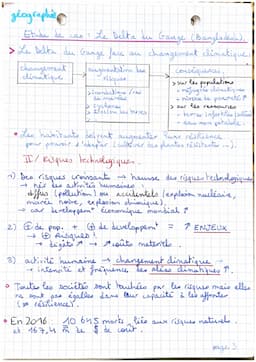 géographie
Etude de cas : Le Delta du Gange (Bangladesh).
> Le Delta du Gange face au changement climatique.
changement climatique
augmentation des risques
> inondations / niv. de marées
> cyclones
> élévation des mers
conséquences
> sur les populations
- réfugiés climatiques
- niveau de pauvreté ↑
> sur les ressources
- terres infertiles
- eau non potable.
• Les habitants doivent augmenter leur résilience
pour pouvoir s'adapter (cultiver des plantes résistantes...).
II / Risques technologiques.
1) Des risques croissants → hausse des risques technologiques
→ nés des activités humaines :
diffus (pollution) ou accidentels (explosion nucléaire,
marée noire, explosion chimique).
→ car développemt économique mondial ↑
2) ⊕ de pop. + ⊕ de développemt = ↑ ENJEUX
→ ⊕ risques !
→ dégâts ↑ → coûts matériels.
3) activité humaine → changement climatique →
→ intensité et fréquence des aléas climatiques ↑.
• Toutes les sociétés sont touchées par les risques mais elles
ne sont pas égales dans leur capacité à les affronter
(⊗ résilience).
• En 2016 10 645 morts liés aux risques naturels
et 167,4 $ de coût.
page 2.